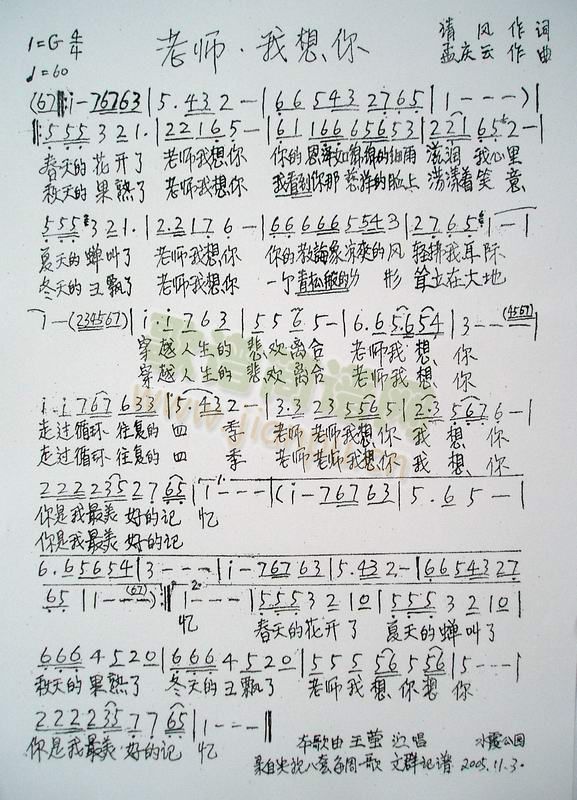 1=G 4/4 老师·我想你 清风 作词
♩=60 孟庆云 作曲
(67|:i-76763|5.432-|66543 2765|1---)|
|:555321.|22165-|61166 65653|221652-|
春天的花开了 老师我想你 你的恩泽如绵绵的细雨 滋润我心里
秋天的果熟了 老师我想你 我看到你那慈祥的脸上 荡漾着笑意
555321.|2.2176-|66666 5543|2765|1-|
夏天的蝉叫了 老师我想你 你的教诲象凉爽的风 轻拼我耳际
冬天的雪飘了 老师我想你 一个青松般的 形 耸立在大地
1--(234567)|i.i763|5565-|6.65654|3--(4567)|
穿越人生的悲欢离合 老师我想你
穿越人生的悲欢离合 老师我想你
i.i767633|5.432-|3.3235565|2.35676-|
走过循环往复的四季 老师老师我想你我想你
走过循环往复的四季 老师老师我想你我想你
2222352765|1---|(i-76763|5.65-|
你是我最美好的记忆
你是我最美好的记
6.65654|3---|i-76763|5.432-|6654327
65|1--(67):|i---|5553210|5553210|
忆 春天的花开了 夏天的蝉叫了
6664520|6664520|5555656|5---|
秋天的果熟了 冬天的雪飘了 老师我想你想你
2222357765|1---||
你是我最美好的记忆
本歌由王莹演唱 水霞公园
文群记谱 2005.11.3.